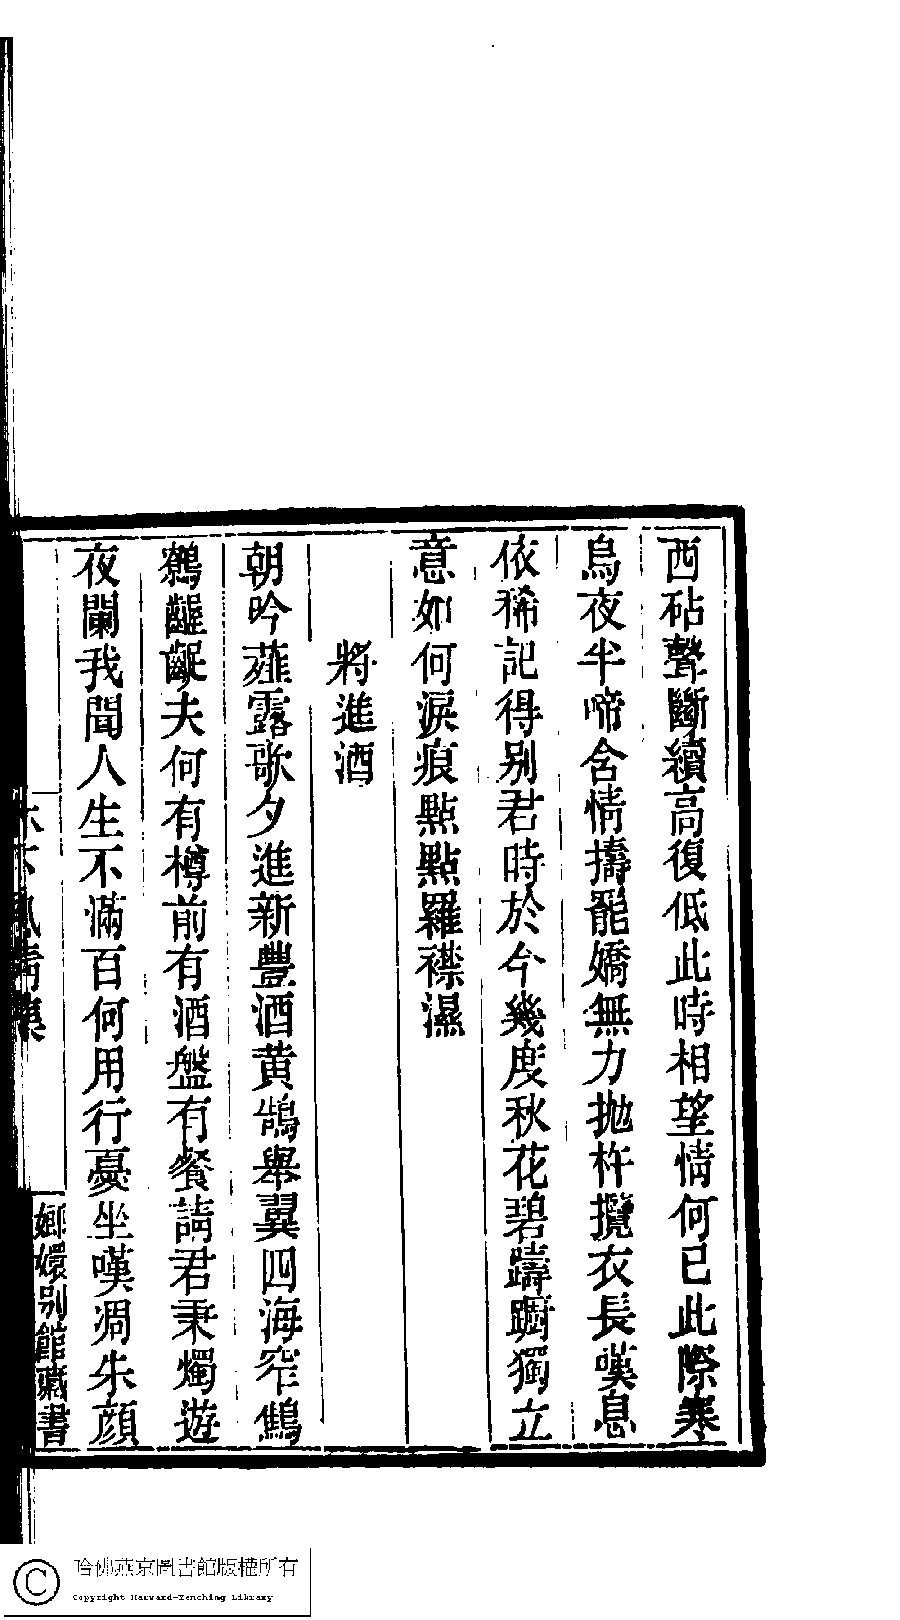 西砧聲斷續高復低此時相望情何已此際寒
烏夜半啼含情擣罷嬌無力拋杵攬衣長嘆息
依稀記得别君時於今幾度秋花碧躊躕獨立
意如何淚痕點點羅襟濕
將進酒
朝吟薤露歌夕進新豐酒黄鵠舉翼四海窄鷦
鷯齷齪夫何有樽前有酒盤有餐請君秉燭遊
夜闌我聞人生不滿百何用行憂坐嘆凋朱顔
集
嫏嬛别館藏書
哈佛燕京圖書館版權所有
Copyright Harvard-Yenching Library